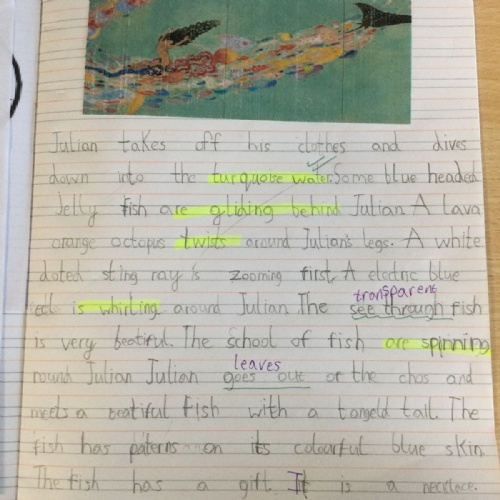 Julian takes off his clothes and dives
down into the turquoise water. Some blue headed
Jelly fish are gliding behind Julian. A lava
orange octopus twists around Julian's legs. A white
doted sting ray is zooming first. A electric blue
eel is whirling around Julian. The see through fish
transparent
is very beatiful. The school of fish are spinning
leaves
round Julian Julian goes out of the chos and
meets a beatiful fish with a tangeld tail. The
fish has paterns on its colourful blue skin.
The fish has a gift. It is a necklace.